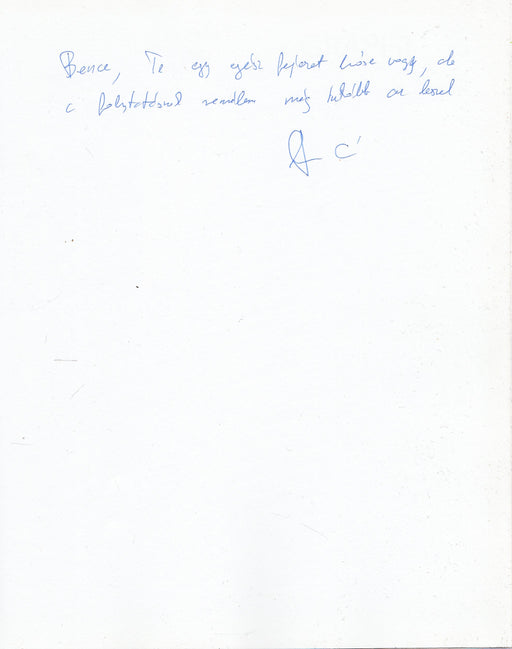 Bence, Te egy egész fejezet hőse vagy, de
a folytatásnál remélem még inkább az leszel